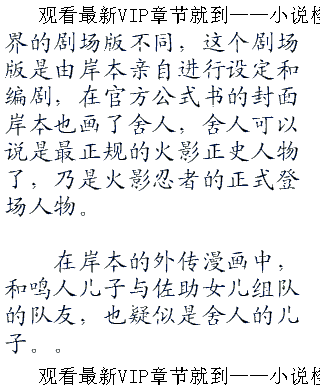 观看最新VIP章节就到——小说
界的剧场版不同，这个剧场
版是由岸本亲自进行设定和
编剧，在官方公式书的封面
岸本也画了舍人，舍人可以
说是最正规的火影正史人物
了，乃是火影忍者的正式登
场人物。
在岸本的外传漫画中，
和鸣人儿子与佐助女儿组队
的队友，也疑似是舍人的儿
子。。
观看最新VIP章节就到——小说